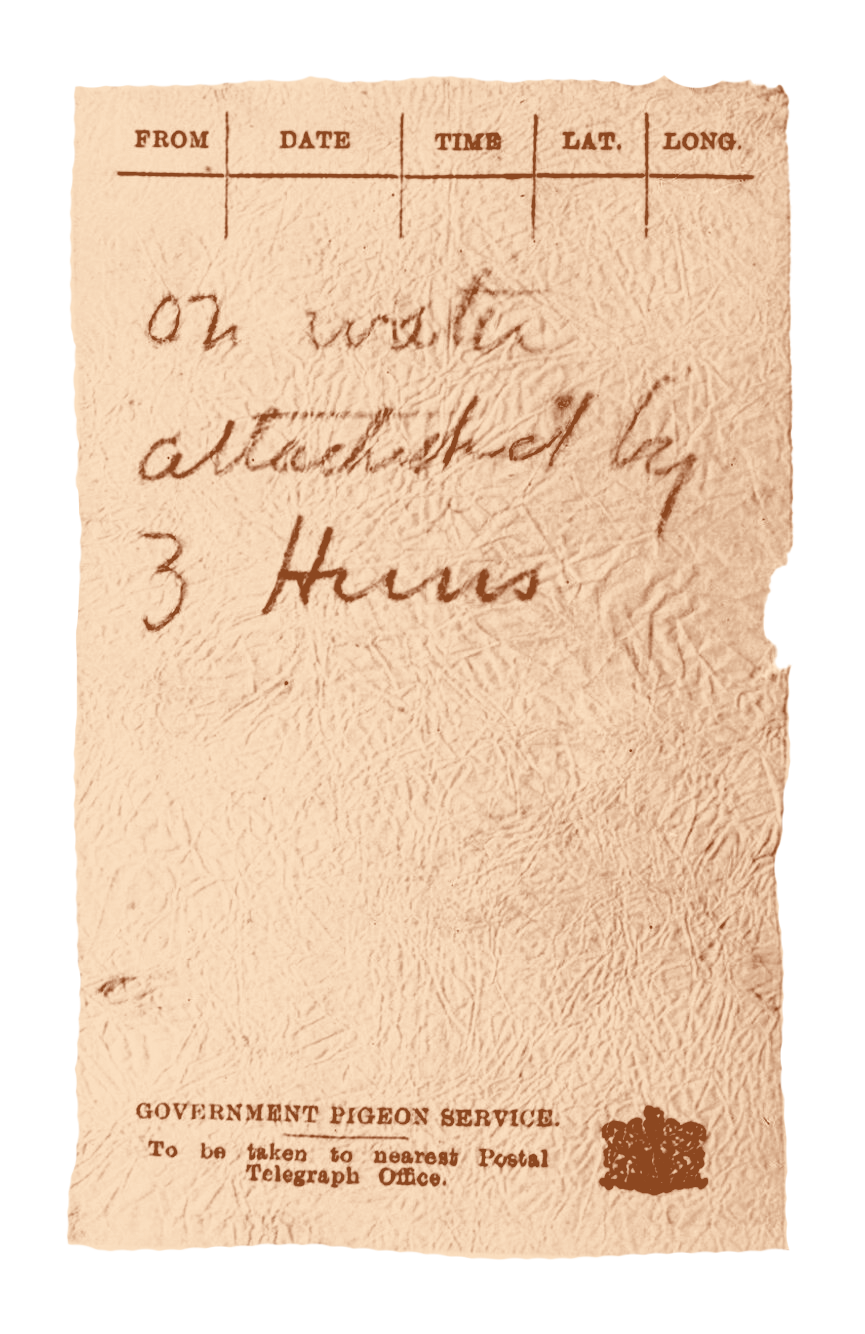 FROM DATE TIME LAT. LONG.
on water
attached by
3 Huns
GOVERNMENT PIGEON SERVICE.
To be taken to nearest Postal
Telegraph Office.